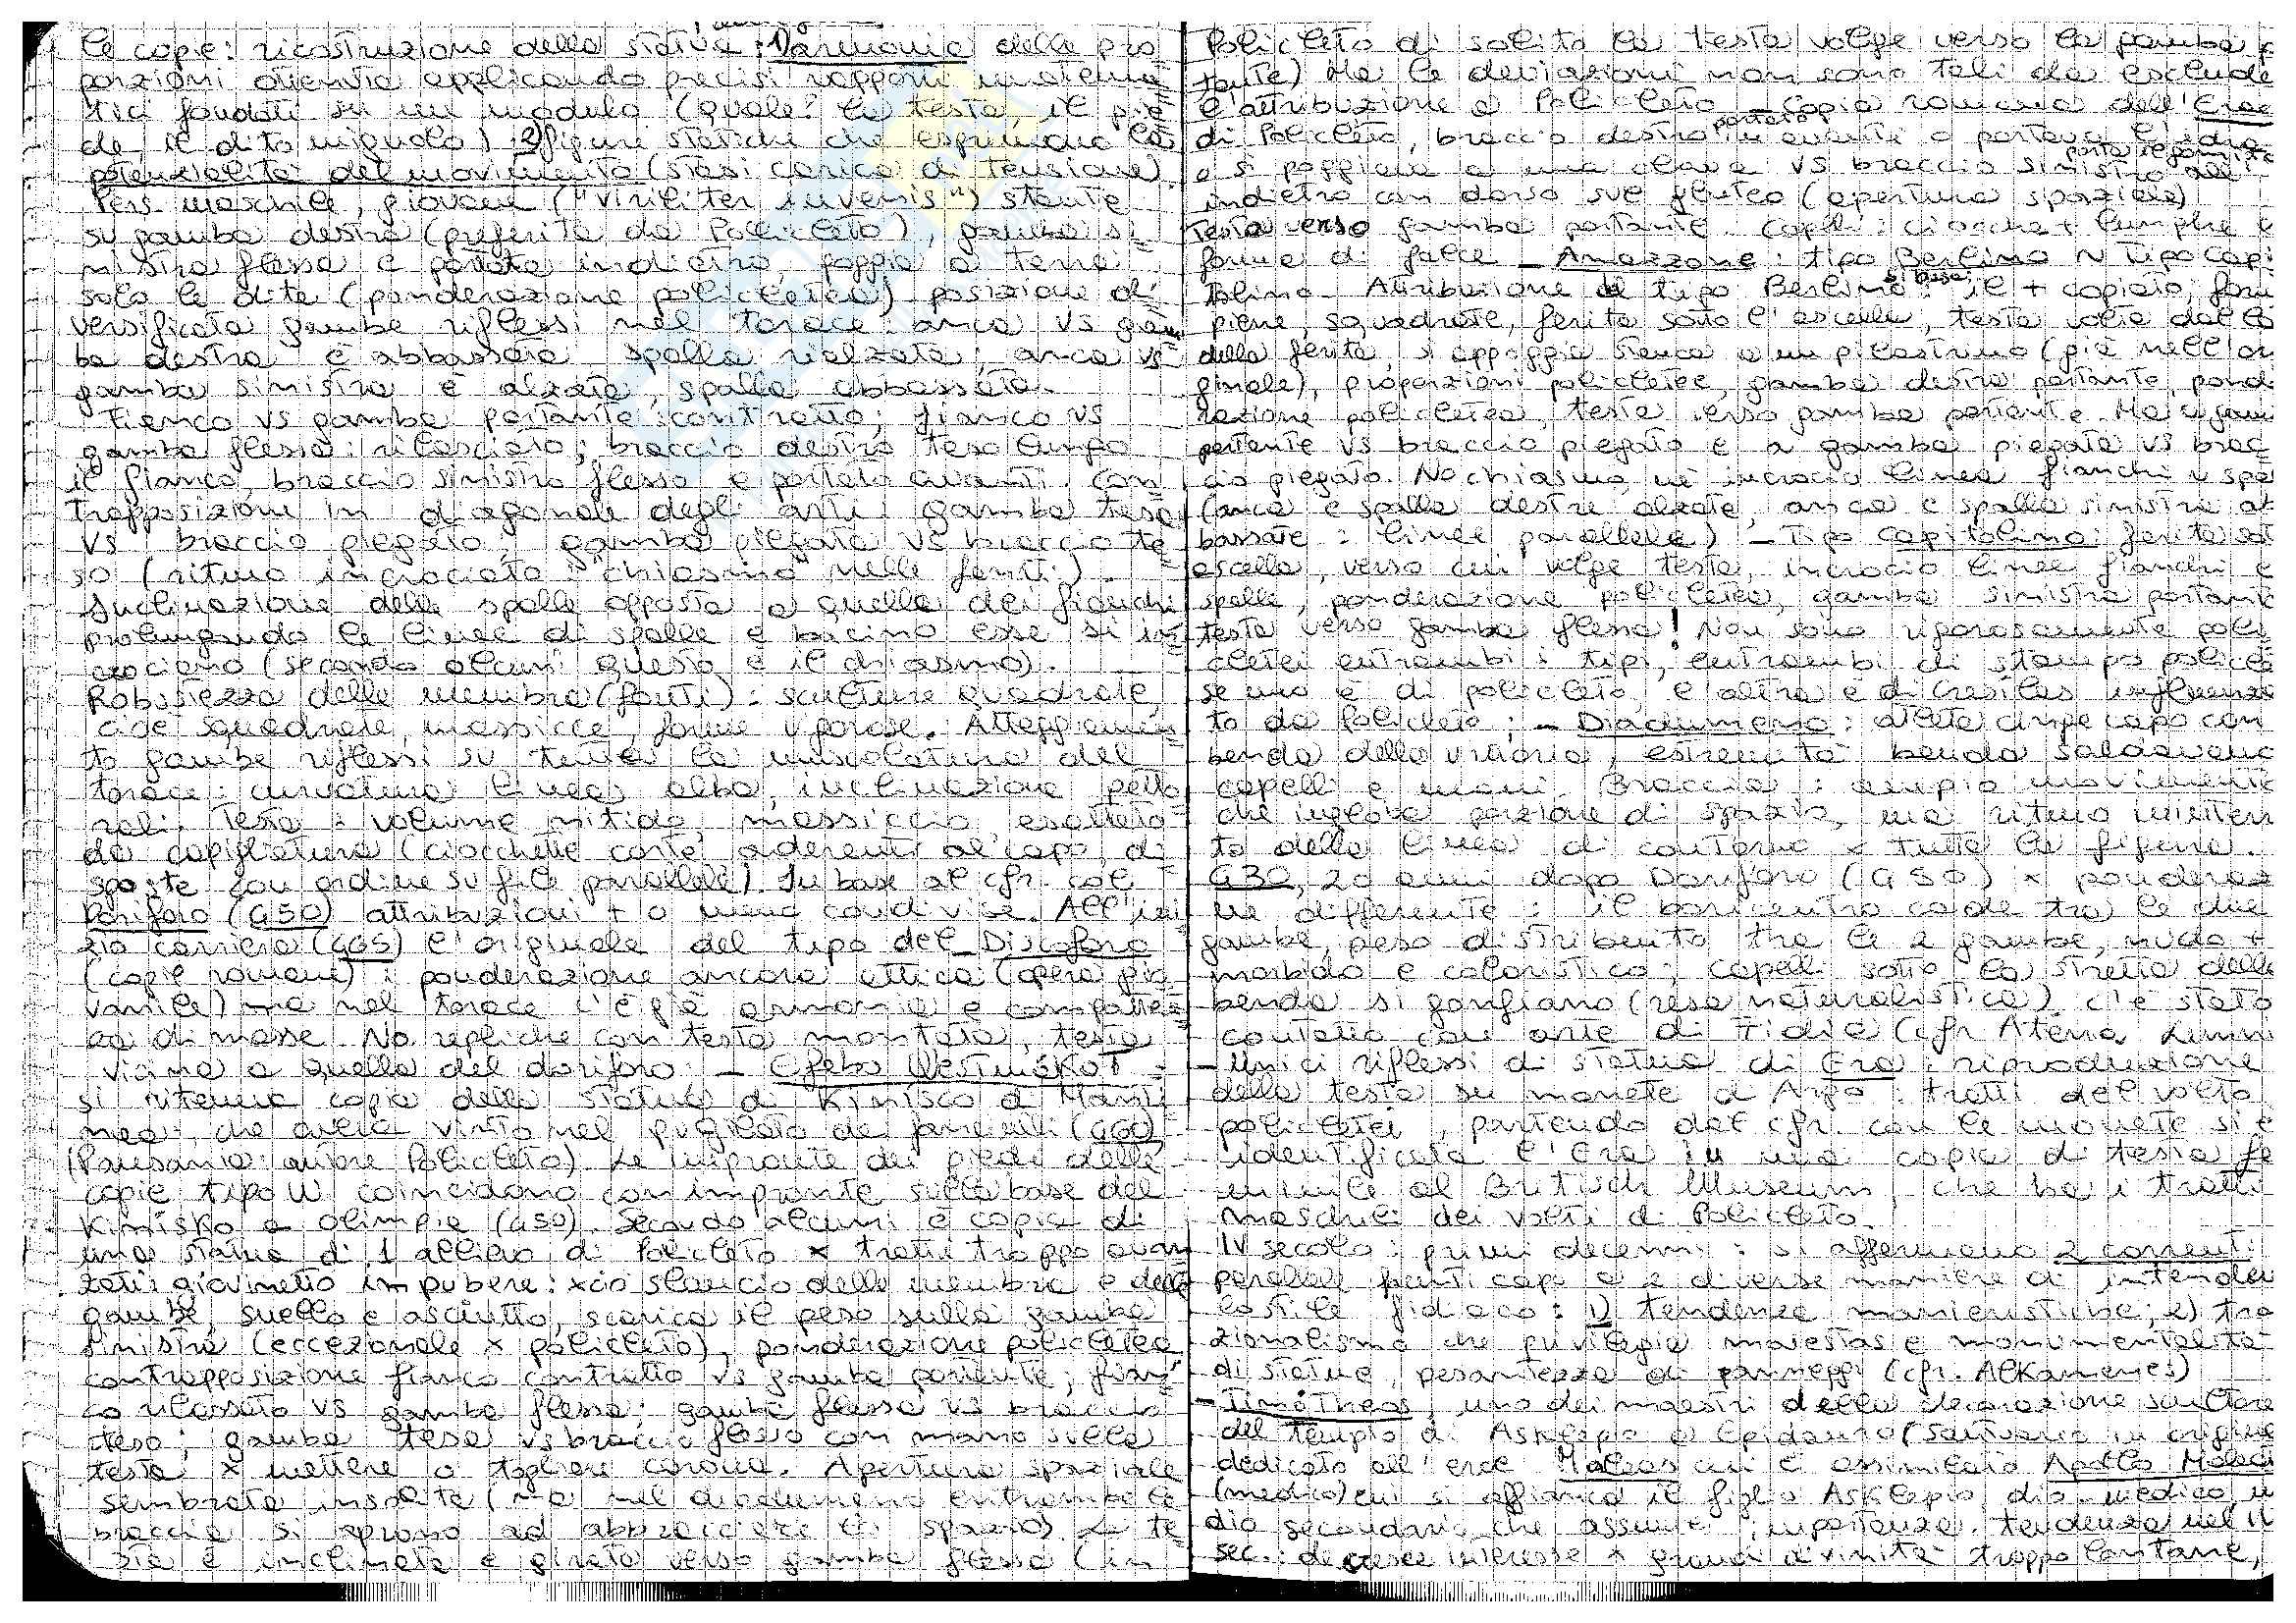 le copie: ricostruzione della statua: 1) armonia delle pro
porzioni ottenuta applicando precisi rapporti matema
tici fondati su un modulo (quale? la testa, il pie
de il dito mignolo) 2) figure statiche che esprimono la
potenzialità del movimento (stasi carica di tensione).
Pers. maschile, giovane ("viriliter iuvenis") stante
su gamba destra (preferita da Policleto), gamba si
nistra flessa e portata indietro, poggia a terra
solo le dita (ponderazione policletea) posizione di
versificata gambe riflessi nel torace: anca vs gam
ba destra è abbassata spalla rialzata; anca vs
gamba sinistra è alzata, spalla abbassata.
Fianco vs gamba portante: contratto; fianco vs
gamba flessa: rilasciato; braccio destro teso lungo
il fianco, braccio sinistro flesso e portato avanti. Con
trapposizione in diagonale degli arti: gamba tesa
vs braccio piegato; gamba piegata vs braccio te
so (ritmo incrociato: "chiasmo" nelle fonti).
Inclinazione delle spalle opposta a quella dei fianchi
prolungando le linee di spalle e bacino esse si in
crociano (secondo alcuni questo è il chiasmo).
Robustezza delle membra (fonti): sculture quadrate,
cioè squadrate, massicce, forme vigorose. Atteggiamen
to gambe riflessi su tutta la muscolatura del
torace: curvatura linea alba, inclinazione petto
rali. Testa: volume nitido, massiccio, esaltato
da capigliatura (ciocchette corte aderenti al capo, di
sposte con ordine su file parallele). In base al cfr. col
Doriforo (450) attribuzioni + o meno condivise. All'ini
zio carriera (465) l'originale del tipo del Discoforo
(copie romane): ponderazione ancora attica (opera gio
vanile) ma nel torace c'è già armonia e compattez
za di masse. No repliche con testa montata, testa
vicina a quella del doriforo. - Efebo Westmakot:
si riteneva copia della statua di Kinisco di Manti
nea, che aveva vinto nel pugilato dei fanciulli (460)
(Pausania: autore Policleto). Le impronte dei piedi delle
copie tipo W coincidono con impronte sulla base del
Kinisko a Olimpia (450). Secondo alcuni è copia di
una statua di 1 allievo di Policleto x tratti troppo avan
zati: giovinetto impubere: xciò slancio delle membra e delle
gambe, snello e asciutto, scarica il peso sulla gamba
sinistra (eccezionale x policleto), ponderazione policletea
contrapposizione fianco contratto vs gamba portante; fian
co rilassato vs gamba flessa; gamba flessa vs braccio
teso; gamba tesa vs braccio flesso con mano sulla
testa x mettere o togliere corona. Apertura spaziale
sembrata insolita (ma nel diadumeno entrambe le
braccia si aprono ad abbracciare lo spazio). La te
sta è inclinata e girata verso gamba flessa (in
Policleto di solito la testa volge verso la gamba p
tante) Ma le deviazioni non sono tali da esclude
l'attribuzione a Policleto. - Copia romana dell'Erac
di Policleto, braccio destro portato in avanti o portava
e si poggiava a una clava vs braccio sinistro
porta pomi
indietro con dorso sul gluteo (apertura spaziale)
Testa verso gamba portante. Capelli: ciocche + lunghe e
forma di falce - Amazzone: tipo Berlino ~ Tipo Capi
tolino. Attribuzione il tipo Berlino si basa: il + copiato, form
piene, squadrate, ferita sotto l'ascella, testa volta dal la
della ferita, si appoggia stanca a un pilastrino (già nell'ori
ginale), proporzioni policletee, gamba destra portante, pond
razione policletea, testa verso gamba portante. Ma a gam
portante vs braccio piegato e a gamba piegata vs brac
cio piegato. No chiasmo, né incrocio linea fianchi e spa
(anca e spalla destre alzate, anca e spalla sinistre ab
bassate: linee parallele) - Tipo Capitolino: ferita sot
ascella, verso cui volge testa, incrocio linee fianchi e
spalle, ponderazione policletea, gamba sinistra portante
testa verso gamba flessa! Non sono rigorosamente poli
cletei entrambi i tipi, entrambi di stampo policle
se uno è di policleto, l'altra è di Cresilas influenza
to da Policleto; - Diadumeno: atleta cinge capo con
benda della vittoria, estremità benda saldavano
capelli e mani. Braccia: ampio movimento
che ingloba porzione di spazio, ma ritmo ininterr
to della linea di contorno x tutta la figura.
430, 20 anni dopo Doriforo (450) x ponderaz
ne differente: il baricentro cade tra le due
gambe, peso distribuito tra le 2 gambe, nudo +
morbido e coloristico; capelli sotto la stretta della
benda si gonfiano (resa naturalistica) c'è stato
contatto con arte di Fidia (cfr Atena Lemn
- Unici riflessi di statua di Era: riproduzione
della testa su monete di Argo: tratti del volto
policletei, partendo dal cfr. con le monete si è
identificata l'Era in una copia di testa fe
minile al Britisch Museum, che ha i tratti
maschili dei volti di Policleto.
IV secolo: primi decenni: si affermano 2 correnti
parallele facenti capo a 2 diverse maniere di intender
lo stile fidiaco: 1) tendenze manieristiche; 2) tra
zionalismo che privilegia maiestas e monumentalità
di statue, pesantezza di panneggi (cfr. Alkamenes)
- Timotheos, uno dei maestri della decorazione scultore
del tempio di Asklepio a Epidauro (santuario in origine
dedicato all'eroe Maleas cui è assimilato Apollo Maleat
(medico) cui si affianca il figlio Asklepio, dio medico, u
dio secondario che assume importanza. tendenza nel IV
sec.: decresce interesse x grandi divinità troppo lontane,